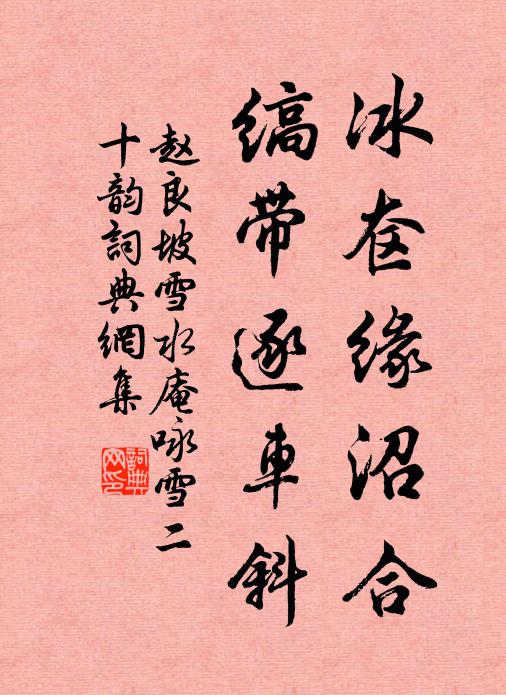 冰奁緣沼合
縞帶逐車斜
赵良坡雪水庵咏雪二
十韵詞典網集
詞典网印